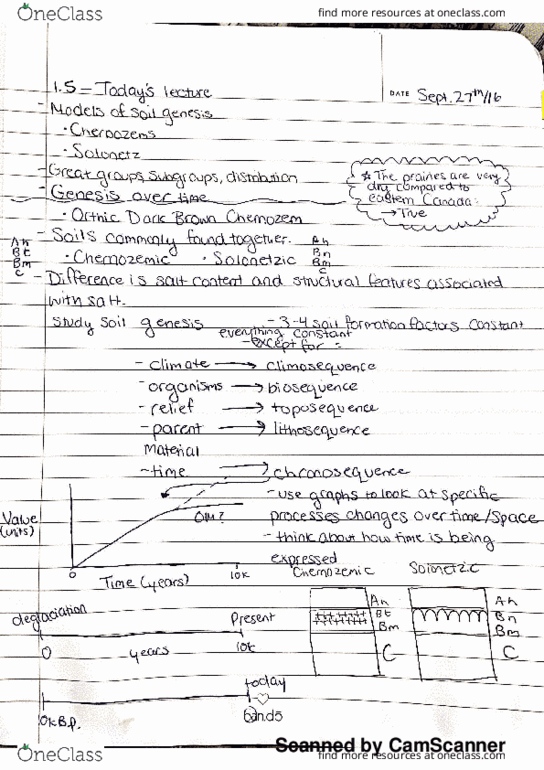 OneClass
find more resources at oneclass.com
1.5 - Today's lecture
DATE Sept. 27th/16
- Models of soil genesis
· Chernozems
· Solonetz
- Great groups, subgroups, distribution
- Genesis over time
☆ The prairies are very
dry compared to
eastern Canada:
→ True
· Orthic Dark Brown Chernozem
- Soils commonly found together.
Ah
Bt
Bm
C
· Chemozemic · Solonetzic
Ah
Bn
Bm
C
- Difference is salt content and structural features associated
with salt.
Study soil genesis - 3-4 soil formation factors constant
everything constant
- except for :
- climate → climosequence
- organisms → biosequence
- relief → toposequence
- parent → lithosequence
Material
- time → chronosequence
- use graphs to look at specific
processes changes over time/space
- think about how time is being
expressed
Value
(units)
OM?
0
10k
Time (years)
Chemozemic
Solonetzic
Ah
Bt
Bm
C
Ah
Bn
Bm
C
deglaciation
Present
0
years
10k
today
10k B.P.
OneClass
Scanned by CamScanner
find more resources at oneclass.com